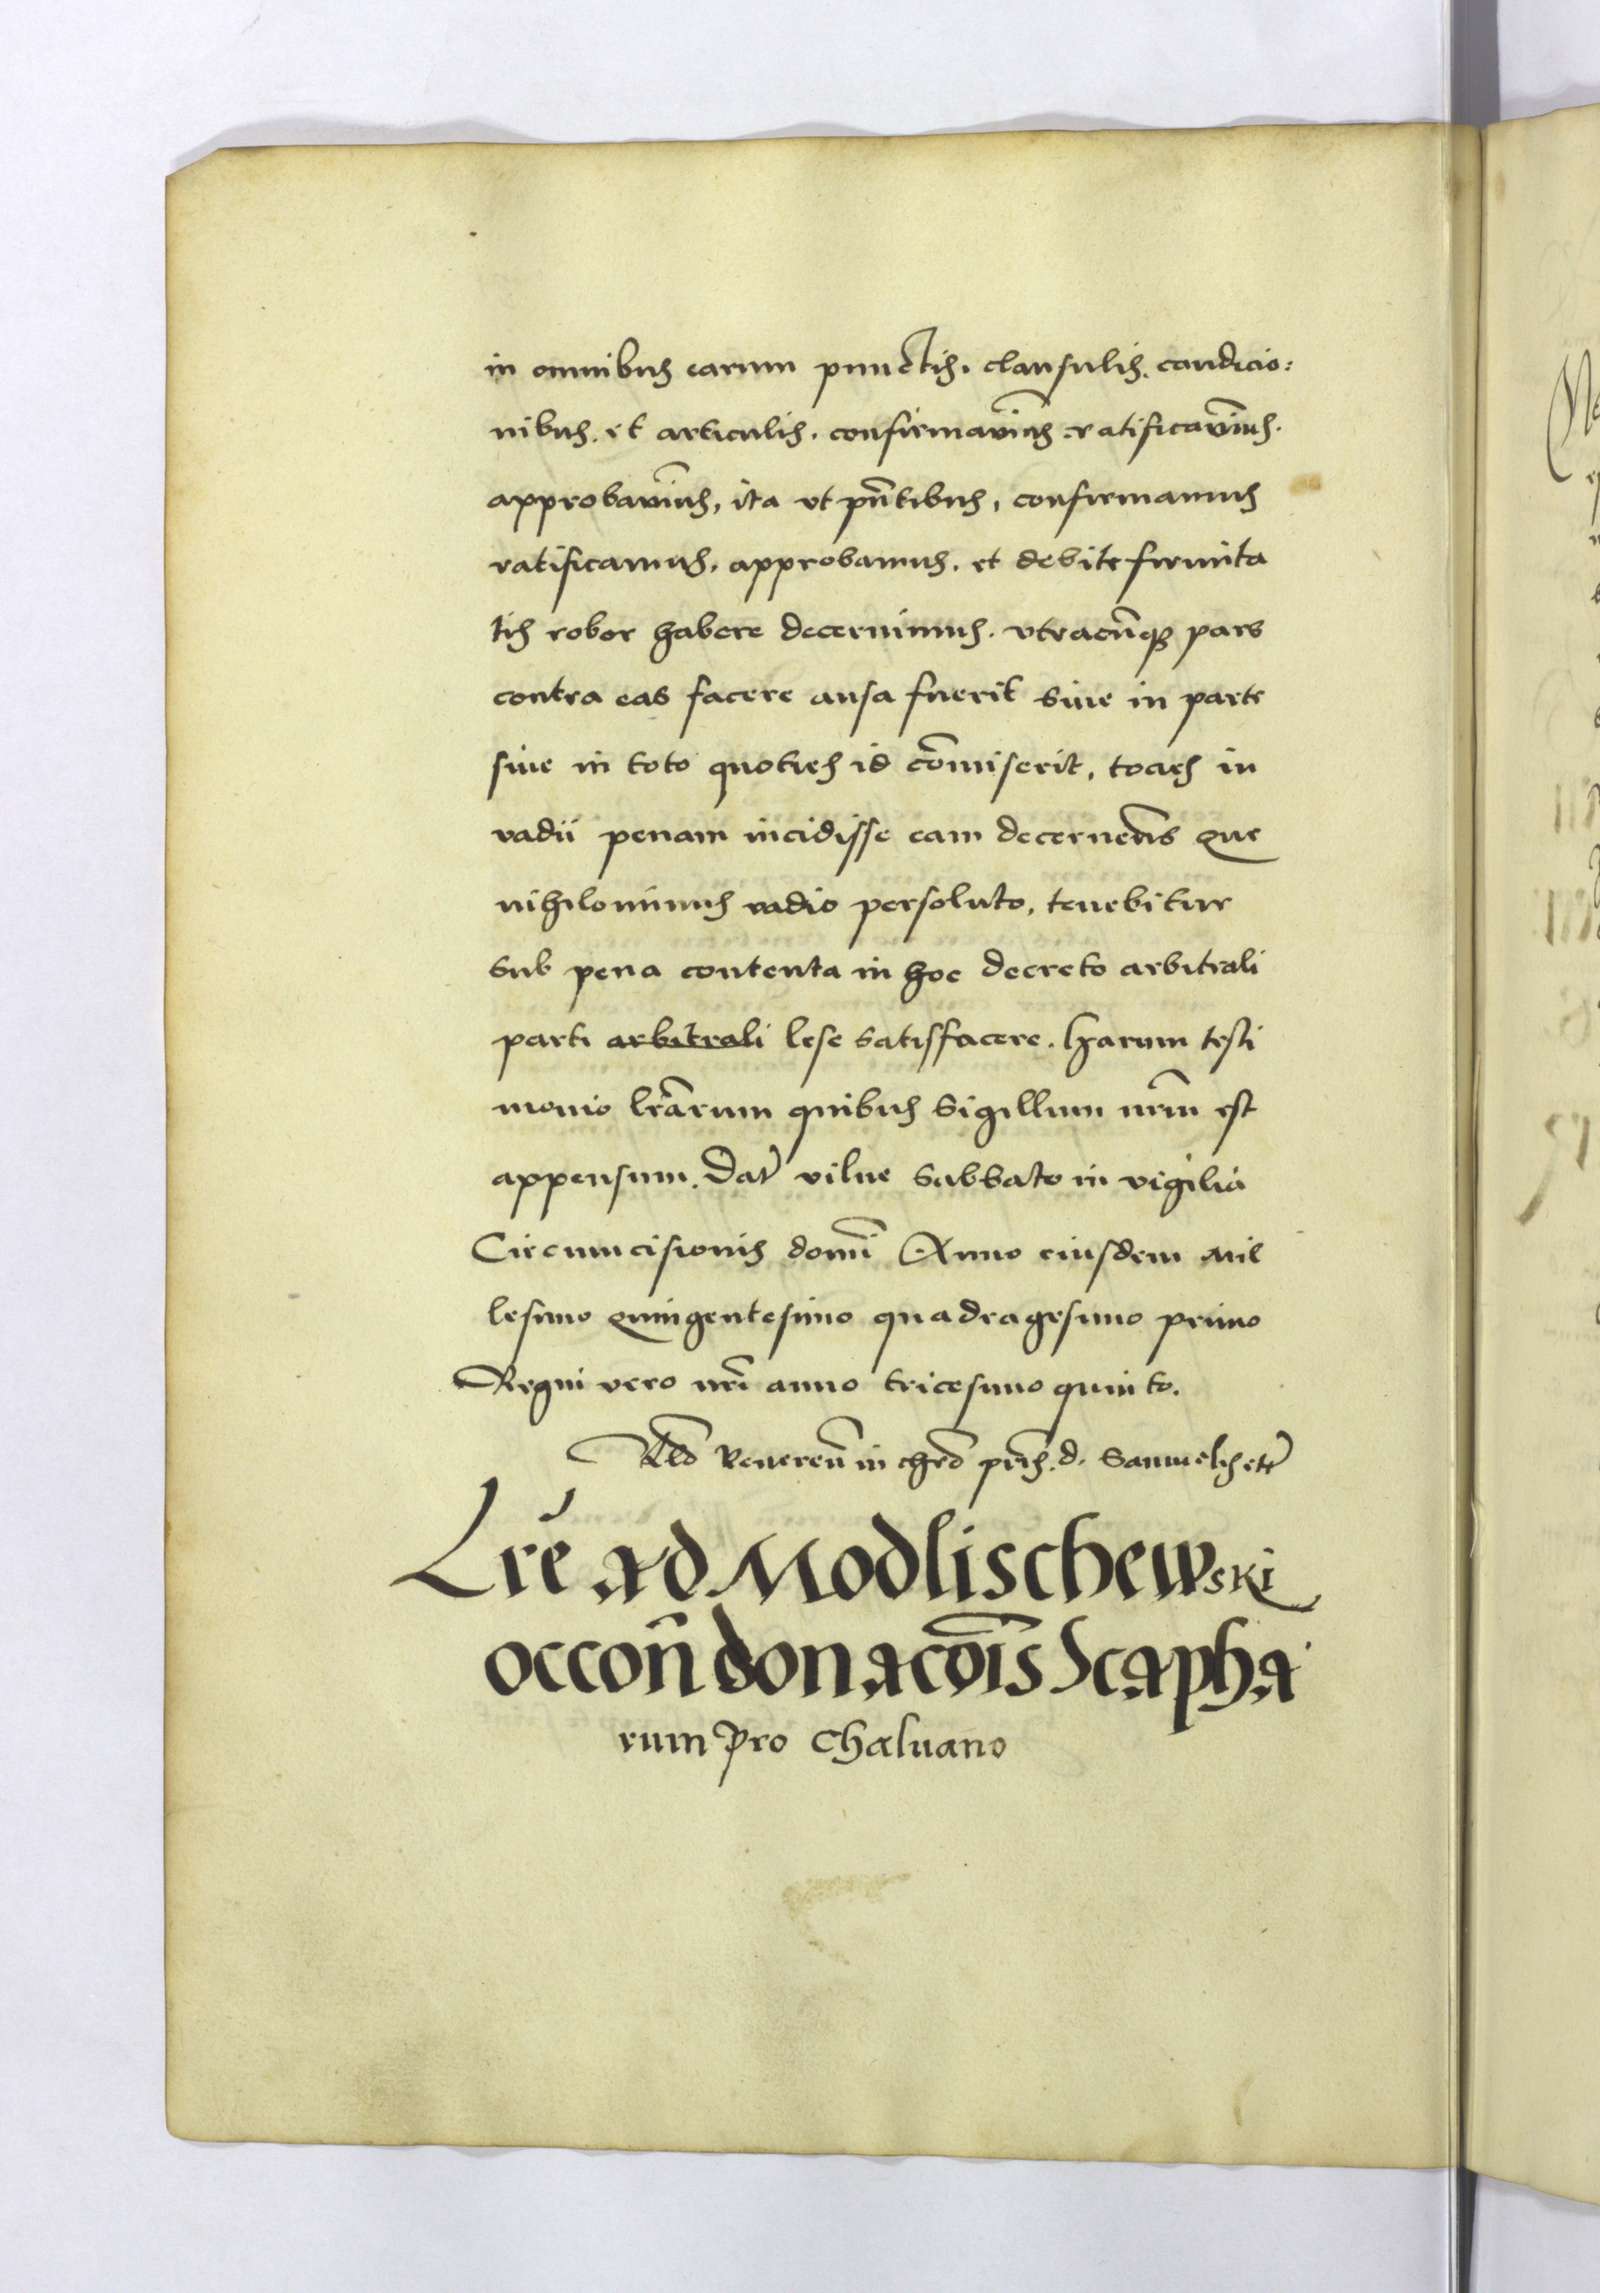 in omnibus earum punctis. clausulis. condicio:
nibus. et articulis. confirmavim̃us ratificavim̃us.
approbavim̃us, ita ut pñtibus, confirmamus
ratificamus. approbamus. et debite firmita
tis robor habere decernimus. utracũqꝫ pars
contra eas facere ausa fuerit sive in parte
sive in toto quoties id cõmiserit, tocies in
vadii penam incidisse eam decernens que
nihilominus vadio persoluto, tenebitur
sub pena contenta in hoc decreto arbitrali
parti arbitrali lese satisfacere. Harum testi
monio lr̃arum quibus Sigillum nr̃m est
appensum. Dat̃ vilne Sabbato in vigilia
Circumcisionis domĩ Anno eiusdem Mil
lesimo quingentesimo quadragesimo primo
Regni vero nr̃i anno tricesimo quinto.
Reveren̄ in chr̃o pr̃is. d. Samuelis etc̃
Lrẽ ad Modlischewski
occoñ donacõis Scapha
rum pro Chalvano